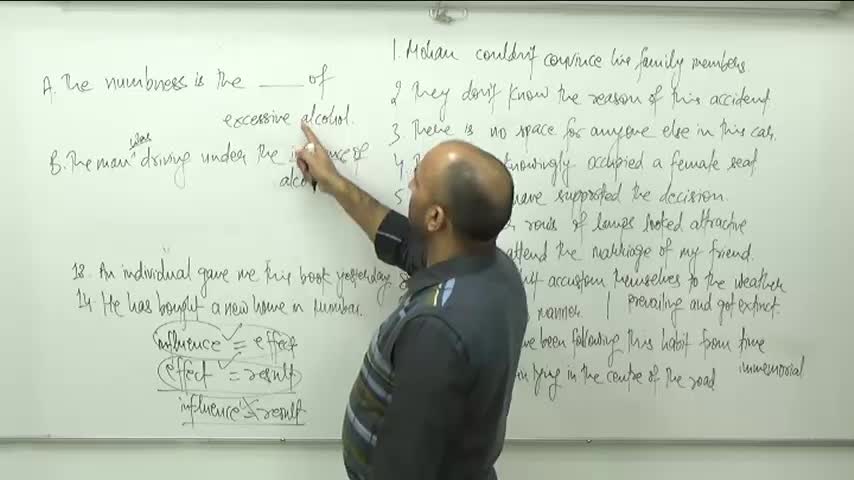 A. The numbness is the ____ of
excessive alcohol.
B. The man was driving under the influence of
alco
13. An individual gave me this book yesterday
14. He has bought a new home in mumbai.
influence = effect
effect = result
influence × result
1. Mohan couldn't convince his family members.
2 They don't know the reason of this accident
3 There is no space for anyone else in this car.
4. knowingly occupied a female seat
5 have supported the decision.
rows of lamps looked attractive
attend the marriage of my friend.
accustom themselves to the weather
manner | prevailing and got extinct.
been following this habit from time
immemorial
lying in the centre of the road